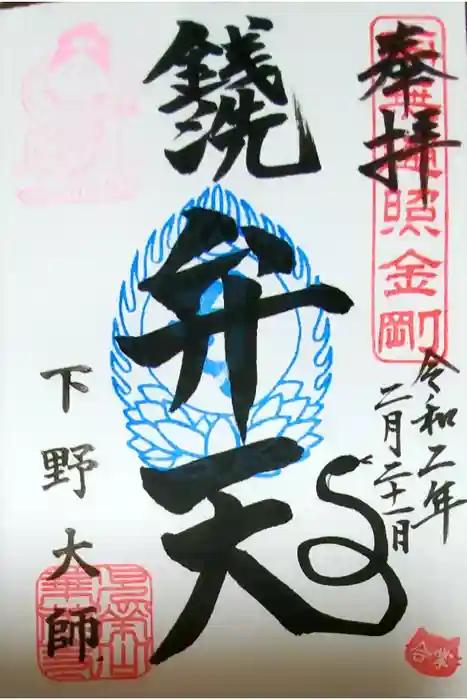 奉拝
令和二年
二月二十一日
銭洗
弁天
下野大師
遍照金剛
合掌